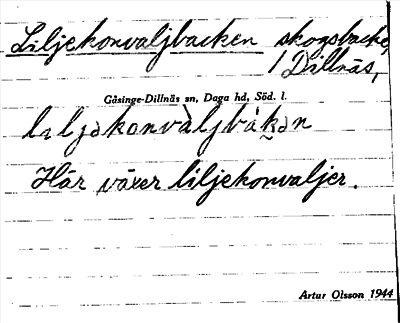 Liljekonvaljbacken skogsbacke,
i Dillnäs,
Gåsinge-Dillnäs sn, Daga hd, Söd. l.
lıljəkonvàljbákən
Här växer liljekonvaljer.
Artur Olsson 1944